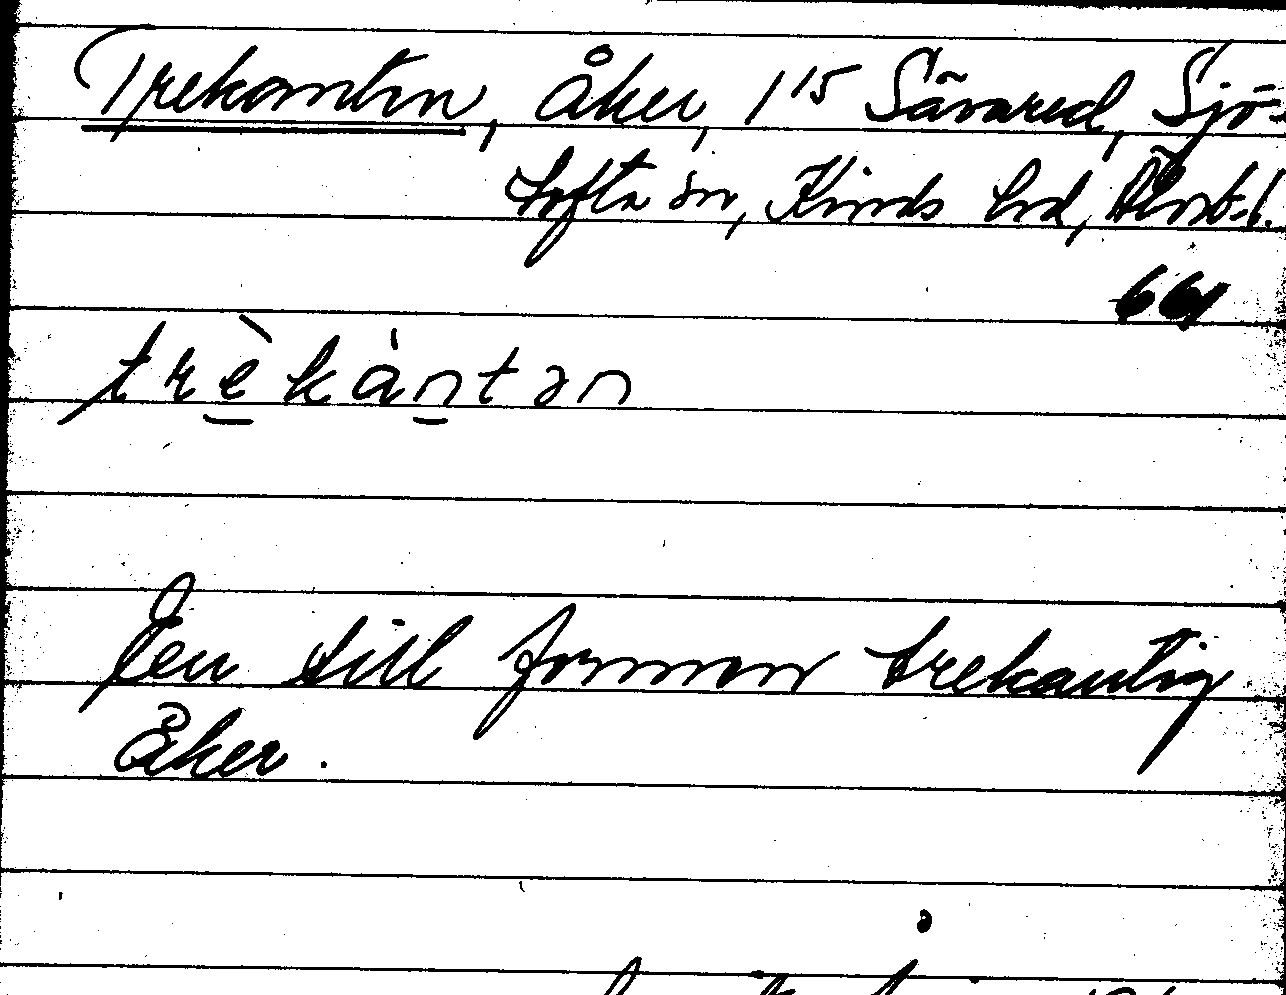 Trekanten, åker, 1 15 Sävared, Sjö-
tofta sn, Kinds hd, Älvsb.l.
661
trèkàntən
En till formen trekantig
åker.